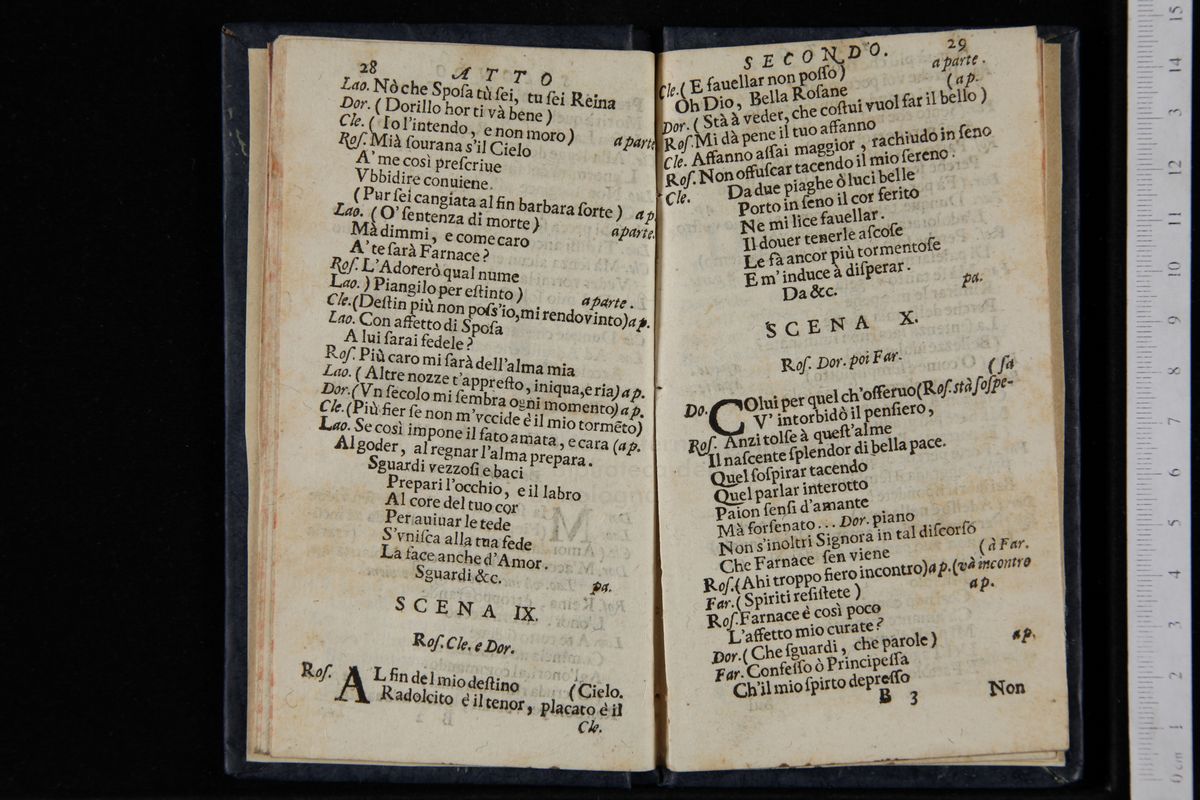 28 ATTO
Lao. Nò che Sposa tù sei, tu sei Reina
Dor. ( Dorillo hor ti và bene )
Cle. ( Io l'intendo, e non moro ) a parte
Ros. Mià sourana s'il Cielo
A' me così prescriue
Vbbidire conuiene.
( Pur sei cangiata al fin barbara sorte ) a p.
Lao. ( O' sentenza di morte ) a parte.
Mà dimmi, e come caro
A' te sarà Farnace ?
Ros. L'Adorerò qual nume
Lao. ) Piangilo per estinto ) a parte.
Cle. (Destin più non poss'io, mi rendo vinto) a p.
Lao. Con affetto di Sposa
A lui sarai fedele ?
Ros. Più caro mi sarà dell'alma mia
Lao. ( Altre nozze t'appresto, iniqua, e ria) a p.
Dor. (Vn secolo mi sembra ogni momento) a p.
Cle. (Più fier se non m'vccide è il mio tormẽto)
Lao. Se così impone il fato amata, e cara (a p.
Al goder, al regnar l'alma prepara.
Sguardi vezzosi e baci
Prepari l'occhio, e il labro
Al core del tuo cor
Per auiuar le tede
S'vnisca alla tua fede
La face anche d'Amor.
Sguardi &c. pa.
SCENA IX.
Ros. Cle. e Dor.
Ros. AL fin del mio destino ( Cielo.
Radolcito è il tenor, placato è il
Cle.
SECONDO. 29
Cle. ( E fauellar non posso ) a parte.
Oh Dio, Bella Rosane ( a p.
Dor. ( Stà à veder, che costui vuol far il bello )
Ros. Mi dà pene il tuo affanno
Cle. Affanno assai maggior, rachiudo in seno
Ros. Non offuscar tacendo il mio sereno.
Cle. Da due piaghe ò luci belle
Porto in seno il cor ferito
Ne mi lice fauellar.
Il douer tenerle ascose
Le fà ancor più tormentose
E m'induce à disperar.
Da &c. pa.
SCENA X.
Ros. Dor. poi Far.
( sa
Do. COlui per quel ch'osseruo (Ros. stà sospe-
V' intorbidò il pensiero,
Ros. Anzi tolse à quest'alme
Il nascente splendor di bella pace.
Quel sospirar tacendo
Quel parlar interotto
Paion sensi d'amante
Mà forsenato ... Dor. piano
Non s'inoltri Signora in tal discorso
Che Farnace sen viene ( à Far.
Ros. (Ahi troppo fiero incontro) a p. (và incontro
Far. ( Spiriti resistete ) a p.
Ros. Farnace è così poco
L'affetto mio curate ?
Dor. (Che sguardi, che parole ) a p.
Far. Confesso ò Principessa
Ch'il mio spirto depresso
B 3 Non
15
14
13
12
11
10
9
8
7
6
5
4
3
2
1
0 cm